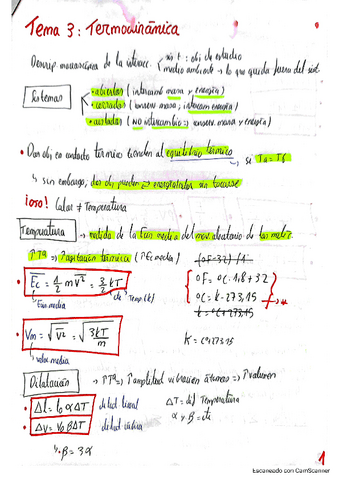 Tema 3: Termodinámica
Descrip macroscópica de la interacc. sist: obj de estudio
medio ambiente → lo que queda fuera del sist.
Sistemas
• abiertos (intercamb masa y energía)
• cerrados (conserv masa, intercam energía)
• aislados (NO intercambio → conserv masa y energía)
• Dos obj en contacto térmico tienden al equilibrio térmico si Ta = Tb
↳ sin embargo, dos obj pueden energéticos sin tocarse
¡oso! Calor ≠ Temperatura
Temperatura → medida de la Ecin media del mov. aleatorio de las moléc.
↑Tª ⇒ ↑agitación térmica (↑Ec media)
• Ec = 1/2 m V² = 3/2 kT
↳ Ecin media
cte
Temp (k)
ºF = ºC · 1.8 + 32
ºC = k - 273,15
k = ºC + 273,15
• Vm = √V² = √3kT/m
↳ veloc media
k = ºC + 273.15
Dilatación → ↑Tª ⇒ ↑amplitud vibración átomos ⇒ ↑volumen
• Δl = l₀ α ΔT dilat lineal
ΔT = dif Temperatura
• Δv = v₀ β ΔT
α y β = cte
↳ β = 3α
1
Escaneado con CamScanner